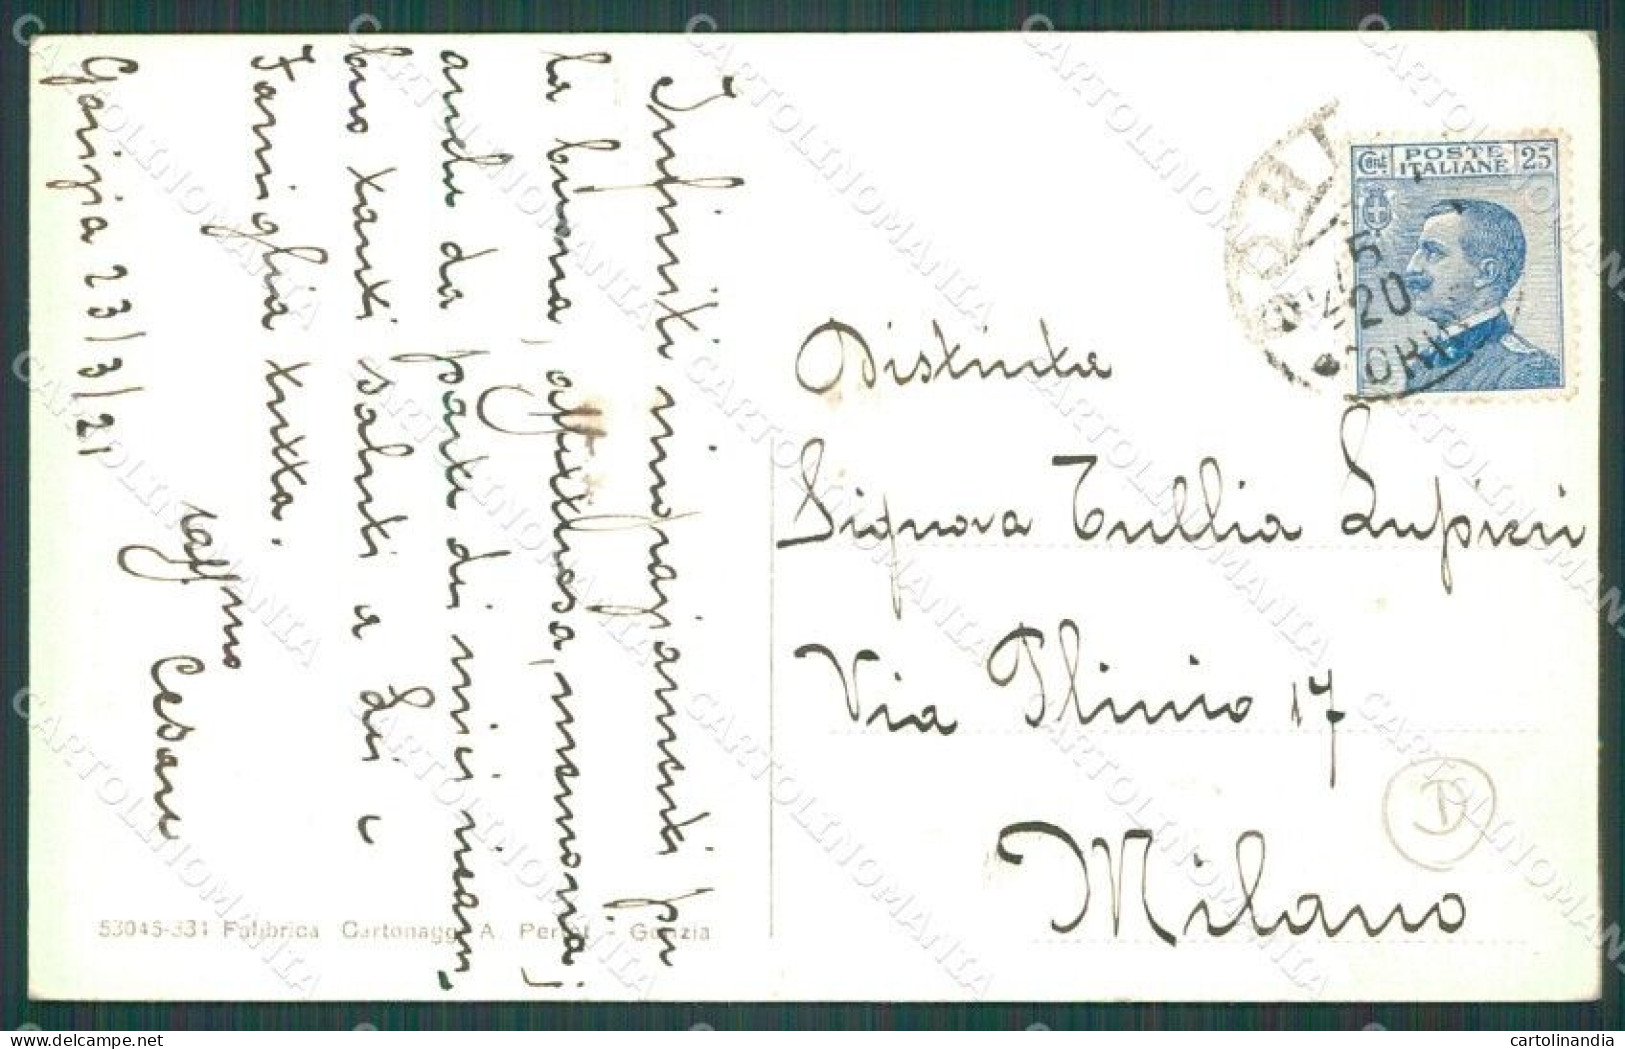 Infiniti ringraziamenti per
la buona, affettuosa, memoria;
anche da parte di miei ricam-
bio tanti saluti a Lei e
Famiglia tutta.
aff.mo
Cesare
Gorizia 23/3/21
53045-331 Fabbrica Cartonaggi A. Perlot - Gorizia
POSTE ITALIANE
Cent. 25
5
20
Distinta
Signora Tullia Lupieri
Via Plinio 17
Milano
CARTOLINOMANIA
cartolinandia